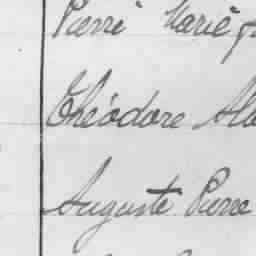 Pierre Marie
Théodore
Auguste Pierre